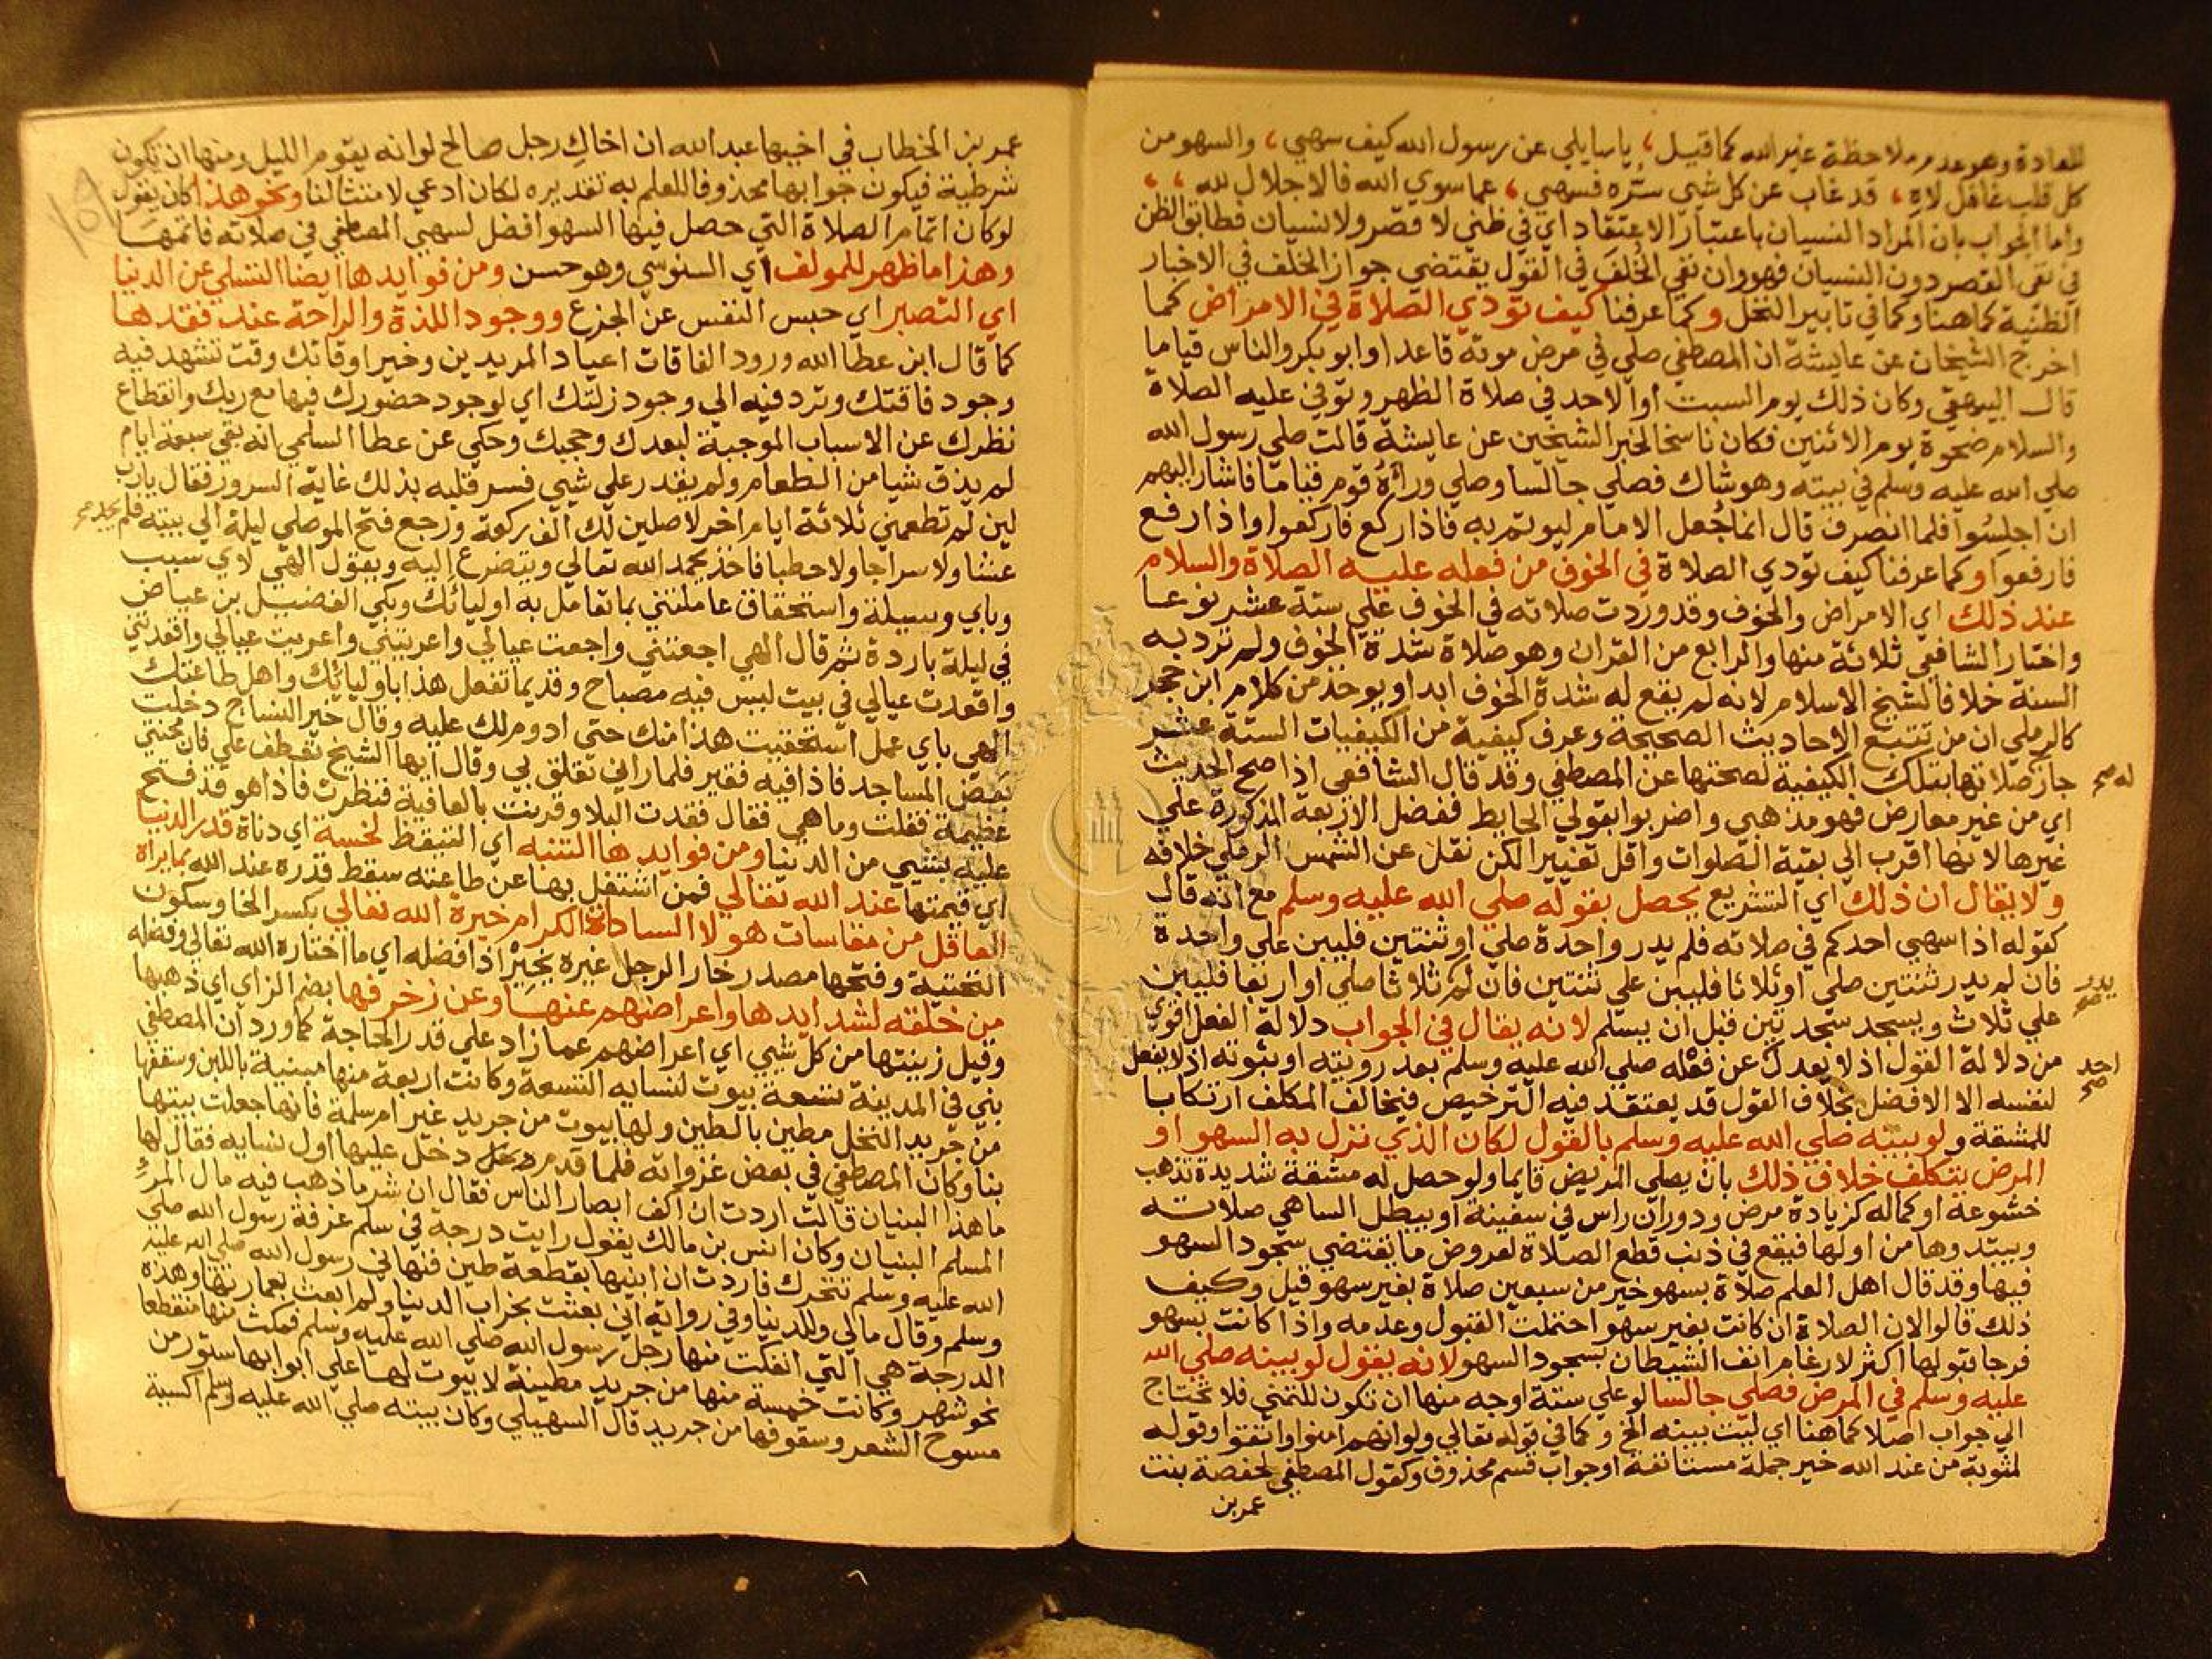 للعادة وهو عدم ملاحظة غير الله كما قيل، يا سايلي عن رسول الله كيف سهي، والسهو من
كل قلب غافل لاه، قد غاب عن كل شي سره فسهي، عما سوي الله فالاجلال لله،،
واما الجواب بان المراد النسيان باعتبار الاعتقاد اي في ظني لا قصر ولا نسيان فطابق الظن
في نفي القصر دون النسيان فهو وان نفي الخلف في القول يقتضي جواز الخلف في الاخبار
الظنية كما هنا وكما في تابير النخل وكما عرفنا كيف تؤدي الصلاة في الامراض كما
اخرج الشيخان عن عايشة ان المصطفي صلي في مرض موته قاعدا وابو بكر والناس قياما
قال البيهقي وكان ذلك يوم السبت او الاحد في صلاة الظهر وتوفي عليه الصلاة
والسلام ضحوة يوم الاثنين فكان ناسخا لخبر الشيخين عن عايشة قالت صلي رسول الله
صلي الله عليه وسلم في بيته وهو شاك فصلي جالسا وصلي وراه قوم قياما فاشار اليهم
ان اجلسوا فلما انصرف قال انما جعل الامام ليوتم به فاذا ركع فاركعوا واذا رفع
فارفعوا وكما عرفنا كيف تؤدي الصلاة في الخوف من فعله عليه الصلاة والسلام
عند ذلك اي الامراض والخوف وقد وردت صلاته في الخوف علي ستة عشر نوعا
واختار الشافعي ثلاثة منها والرابع من القران وهو صلاة شدة الخوف ولم ترد به
السنة خلافا لشيخ الاسلام لانه لم يقع له شدة الخوف ابدا ويوخذ من كلام ابن حجر
كالرملي ان من تتبع الاحاديث الصحيحة وعرف كيفية من الكيفيات الستة عشر
جاز صلاتها بتلك الكيفية لصحتها عن المصطفي وقد قال الشافعي اذا صح الحديث
له صح
اي من غير معارض فهو مذهبي واضربوا بقولي الحايط ففضل الاربعة المذكورة علي
غيرها لانها اقرب الي بقية الصلوات واقل تغييرا لكن نقل عن الشمس الرملي خلافه
ولا يقال ان ذلك اي التشريع يحصل بقوله صلي الله عليه وسلم مع انه قال
كقوله اذا سهي احدكم في صلاته فلم يدر واحدة صلي او ثنتين فليبن علي واحدة
فان لم يدر ثنتين صلي او ثلاثا فليبن علي ثنتين فان لم ثلاثا صلي او اربعا فليبن
يدر صح
علي ثلاث ويسجد سجدتين قبل ان يسلم لانه يقال في الجواب دلالة الفعل اقوي
من دلالة القول اذ لا يعدل عن فعله صلي الله عليه وسلم بعد رويته او ثبوته اذ لا يفعل
احد صح
لنفسه الا الافضل بخلاف القول قد يعتقد فيه الترخيص فيخالف المكلف ارتكابا
للمشقة ولو بينه صلي الله عليه وسلم بالقول لكان الذي نزل به السهو او
المرض يتكلف خلاف ذلك بان يصلي المريض قايما ولو حصل له مشقة شديدة تذهب
خشوعه او كماله كزيادة مرض ودوران راس في سفينة او يبطل الساهي صلاته
ويبتدوها من اولها فيقع في ذنب قطع الصلاة لعروض ما يقتضي سجود السهو
فيها وقد قال اهل العلم صلاة بسهو خير من سبعين صلاة بغير سهو قيل وكيف
ذلك قالوا لان الصلاة ان كانت بغير سهو احتملت القبول وعدمه واذا كانت بسهو
فرجا قبولها اكثر لارغام انف الشيطان بسجود السهو لانه يقول لو بينه صلي الله
عليه وسلم في المرض فصلي جالسا لو علي ستة اوجه منها ان تكون للتمني فلا تحتاج
الي جواب اصلا كما هنا اي ليت بينه الخ وكما في قوله تعالي ولو انهم امنوا واتقوا وقوله
لمثوبة من عند الله خير جملة مستانفة او جواب قسم محذوف وكقول المصطفي لحفصة بنت
عمر بن
عمر بن الخطاب في اخيها عبد الله ان اخاك رجل صالح لو انه يقوم الليل ومنها ان تكون
شرطية فيكون جوابها محذوفا للعلم به تقديره لكان ادعي لامتثالنا ونحو هذا كان يقول
لو كان اتمام الصلاة التي حصل فيها السهو افضل لسهي المصطفي في صلاته فاتمها
وهذا ما ظهر للمولف اي السنوسي وهو حسن ومن فوايدها ايضا التسلي عن الدنيا
اي التصبر اي حبس النفس عن الجزع ووجود اللذة والراحة عند فقدها
كما قال ابن عطا الله ورود الفاقات اعياد المريدين وخير اوقاتك وقت تشهد فيه
وجود فاقتك وترد فيه الي وجود زلتك اي لوجود حضورك فيها مع ربك وانقطاع
نظرك عن الاسباب الموجبة لبعدك وحجبك وحكي عن عطا السلمي انه بقي سبعة ايام
لم يذق شيا من الطعام ولم يقدر علي شي فسر قلبه بذلك غاية السرور فقال يا رب
لين لم تطعمني ثلاثة ايام اخر لاصلين لك الف ركعة ورجع فتح الموصلي ليلة الي بيته فلم يجد صح
عشا ولا سراجا ولا حطبا فاخذ يحمد الله تعالي ويتضرع اليه ويقول الهي لاي سبب
وباي وسيلة واستحقاق عاملتني بما تعامل به اوليائك وبكي الفضيل بن عياض
في ليلة باردة ثم قال الهي اجعتني واجعت عيالي واعريتني واعريت عيالي واقعدتني
واقعدت عيالي في بيت ليس فيه مصباح وقديما تفعل هذا باوليائك واهل طاعتك
الهي باي عمل استحقيت هذا منك حتي ادوم لك عليه وقال خير النساج دخلت
بعض المساجد فاذا فيه فقير فلما راني تعلق بي وقال ايها الشيخ تعطف علي فان محنتي
عظيمة فقلت وما هي فقال فقدت البلا وقرنت بالعافية فنظرت فاذا هو قد فتح
عليه بشيي من الدنيا ومن فوايدها التنبه اي التيقظ لخسة اي دناة قدر الدنيا
اي قيمتها عند الله تعالي فمن اشتغل بها عن طاعته سقط قدره عند الله بما يراه
العاقل من مقاسات هولا السادة الكرام خيرة الله تعالي بكسر الخا وسكون
التحتية وفتحها مصدر خار الرجل غيره يخير اذا فضله اي ما اختاره الله تعالي وفضله
من خلقه لشدايدها واعراضهم عنها وعن زخرفها بضم الزاي اي ذهبها
وقيل زينتها من كل شيي اي اعراضهم عما زاد علي قدر الحاجة كما ورد ان المصطفي
بني في المدينة تسعة بيوت لنسايه التسعة وكانت اربعة منها مبنية باللبن وسقفها
من جريد النخل مطين بالطين ولها بيوت من جريد غير ام سلمة فانها جعلت بيتها
بنا وكان المصطفي في بعض غزواته فلما قدم دخل عليها اول نسايه فقال لها
ما هذا البنيان قالت اردت ان اكف ابصار الناس فقال ان شر ما ذهب فيه مال المرء
المسلم البنيان وكان انس بن مالك يقول رايت درجة في سلم غرفة رسول الله صلي
الله عليه وسلم تتحرك فاردت ان ابنيها بقطعة طين فنهاني رسول الله صلي الله عليه
وسلم وقال مالي وللدنيا وفي رواية اني بعثت بخراب الدنيا ولم ابعث بعمارتها وهذه
الدرجة هي التي انفكت منها رجل رسول الله صلي الله عليه وسلم فمكث منها منقطعا
نحو شهر وكانت خمسة منها من جريد مطينة لا بيوت لها علي ابوابها ستور من
مسوح الشعر وسقوفها من جريد قال السهيلي وكان بيته صلي الله عليه وسلم اكسية